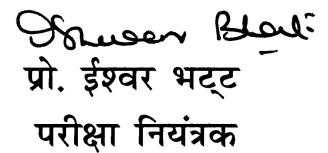 Ishwar Bhatt
प्रो. ईश्वर भट्ट
परीक्षा नियंत्रक